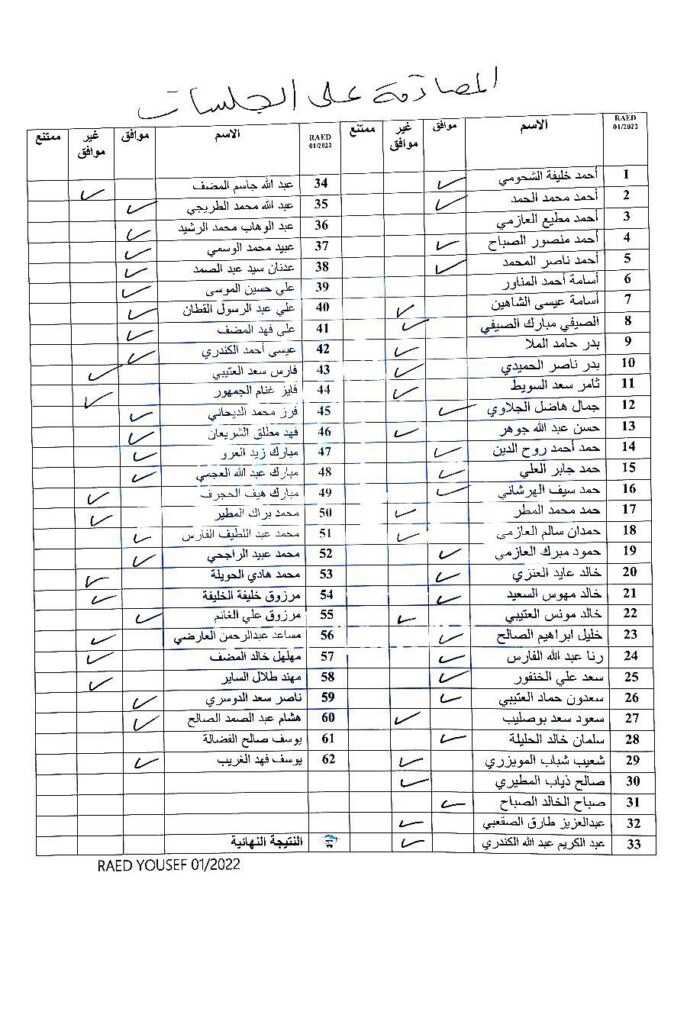 المصادقة على الجلسات
RAED 01/2022 الاسم موافق غير موافق ممتنع
1 أحمد خليفة الشحومي ✓
2 أحمد محمد الحمد ✓
3 أحمد مطيع العازمي
4 أحمد منصور الصباح ✓
5 أحمد ناصر المحمد ✓
6 أسامة أحمد المناور
7 أسامة عيسى الشاهين ✓
8 الصيفي مبارك الصيفي ✓
9 بدر حامد الملا ✓
10 بدر ناصر الحميدي ✓
11 ثامر سعد السويط ✓
12 جمال هاضل الجلاوي ✓
13 حسن عبد الله جوهر ✓
14 حمد أحمد روح الدين ✓
15 حمد جابر العلي ✓
16 حمد سيف الهرشاني ✓
17 حمد محمد المطر ✓
18 حمدان سالم العازمي ✓
19 حمود مبرك العازمي ✓
20 خالد عايد العنزي ✓
21 خالد مهوس السعيد ✓
22 خالد مونس العتيبي ✓
23 خليل ابراهيم الصالح ✓
24 رنا عبد الله الفارس ✓
25 سعد علي الخنفور ✓
26 سعدون حماد العتيبي ✓
27 سعود سعد بوصليب ✓
28 سلمان خالد الحليلة ✓
29 شعيب شباب المويزري ✓
30 صالح ذياب المطيري ✓
31 صباح الخالد الصباح ✓
32 عبدالعزيز طارق الصقعبي ✓
33 عبد الكريم عبد الله الكندري ✓
RAED 01/2022 الاسم موافق غير موافق ممتنع
34 عبد الله جاسم المضف ✓
35 عبد الله محمد الطريجي ✓
36 عبد الوهاب محمد الرشيد ✓
37 عبيد محمد الوسمي ✓
38 عدنان سيد عبد الصمد ✓
39 علي حسين الموسى ✓
40 علي عبد الرسول القطان ✓
41 على فهد المضف ✓
42 عيسى أحمد الكندري ✓
43 فارس سعد العتيبي ✓
44 فايز غنام الجمهور ✓
45 فرز محمد الديحاني ✓
46 فهد مطلق الشريعان ✓
47 مبارك زيد العرو ✓
48 مبارك عبد الله العجمي ✓
49 مبارك هيف الحجرف ✓
50 محمد براك المطير ✓
51 محمد عبد اللطيف الفارس ✓
52 محمد عبيد الراجحي ✓
53 محمد هادي الحويلة ✓
54 مرزوق خليفة الخليفة ✓
55 مرزوق علي الغانم ✓
56 مساعد عبدالرحمن العارضي ✓
57 مهلهل خالد المضف ✓
58 مهند طلال الساير ✓
59 ناصر سعد الدوسري ✓
60 هشام عبد الصمد الصالح ✓
61 يوسف صالح الفضالة
62 يوسف فهد الغريب ✓
النتيجة النهائية
RAED YOUSEF 01/2022